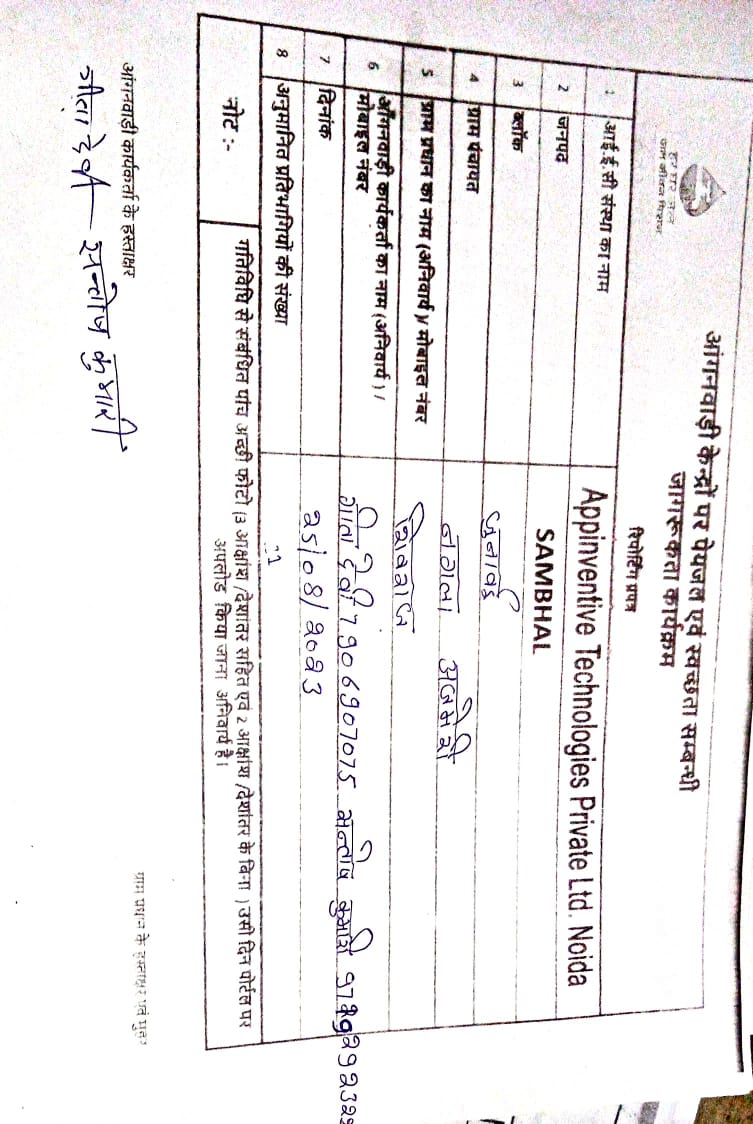 हर घर जल
जल जीवन मिशन
आंगनवाड़ी केन्द्रों पर पेयजल एवं स्वच्छता सम्बन्धी
जागरूकता कार्यक्रम
रिपोर्टिंग प्रपत्र
1 आई.ई.सी संस्था का नाम Appinventive Technologies Private Ltd. Noida
2 जनपद SAMBHAL
3 ब्लॉक जुनावई
4 ग्राम पंचायत नगला अजमेरी
5 ग्राम प्रधान का नाम (अनिवार्य)/ मोबाइल नंबर शिवराज
6 आँगनवाड़ी कार्यकर्ता का नाम (अनिवार्य) /
मोबाइल नंबर गीता देवी 7906907075 सन्तोष कुमारी
7 दिनांक 25/08/2023
8 अनुमानित प्रतिभागियों की संख्या
नोट :- गतिविधि से संबंधित पांच अच्छी फोटो (3 आक्षांश /देशांतर सहित एवं 2 आक्षांश /देशांतर के बिना ) उसी दिन पोर्टल पर
अपलोड किया जाना अनिवार्य है।
आंगनवाड़ी कार्यकर्ता के हस्ताक्षर ग्राम प्रधान के हस्ताक्षर एवं मुहर
गीता देवी सन्तोष कुमारी